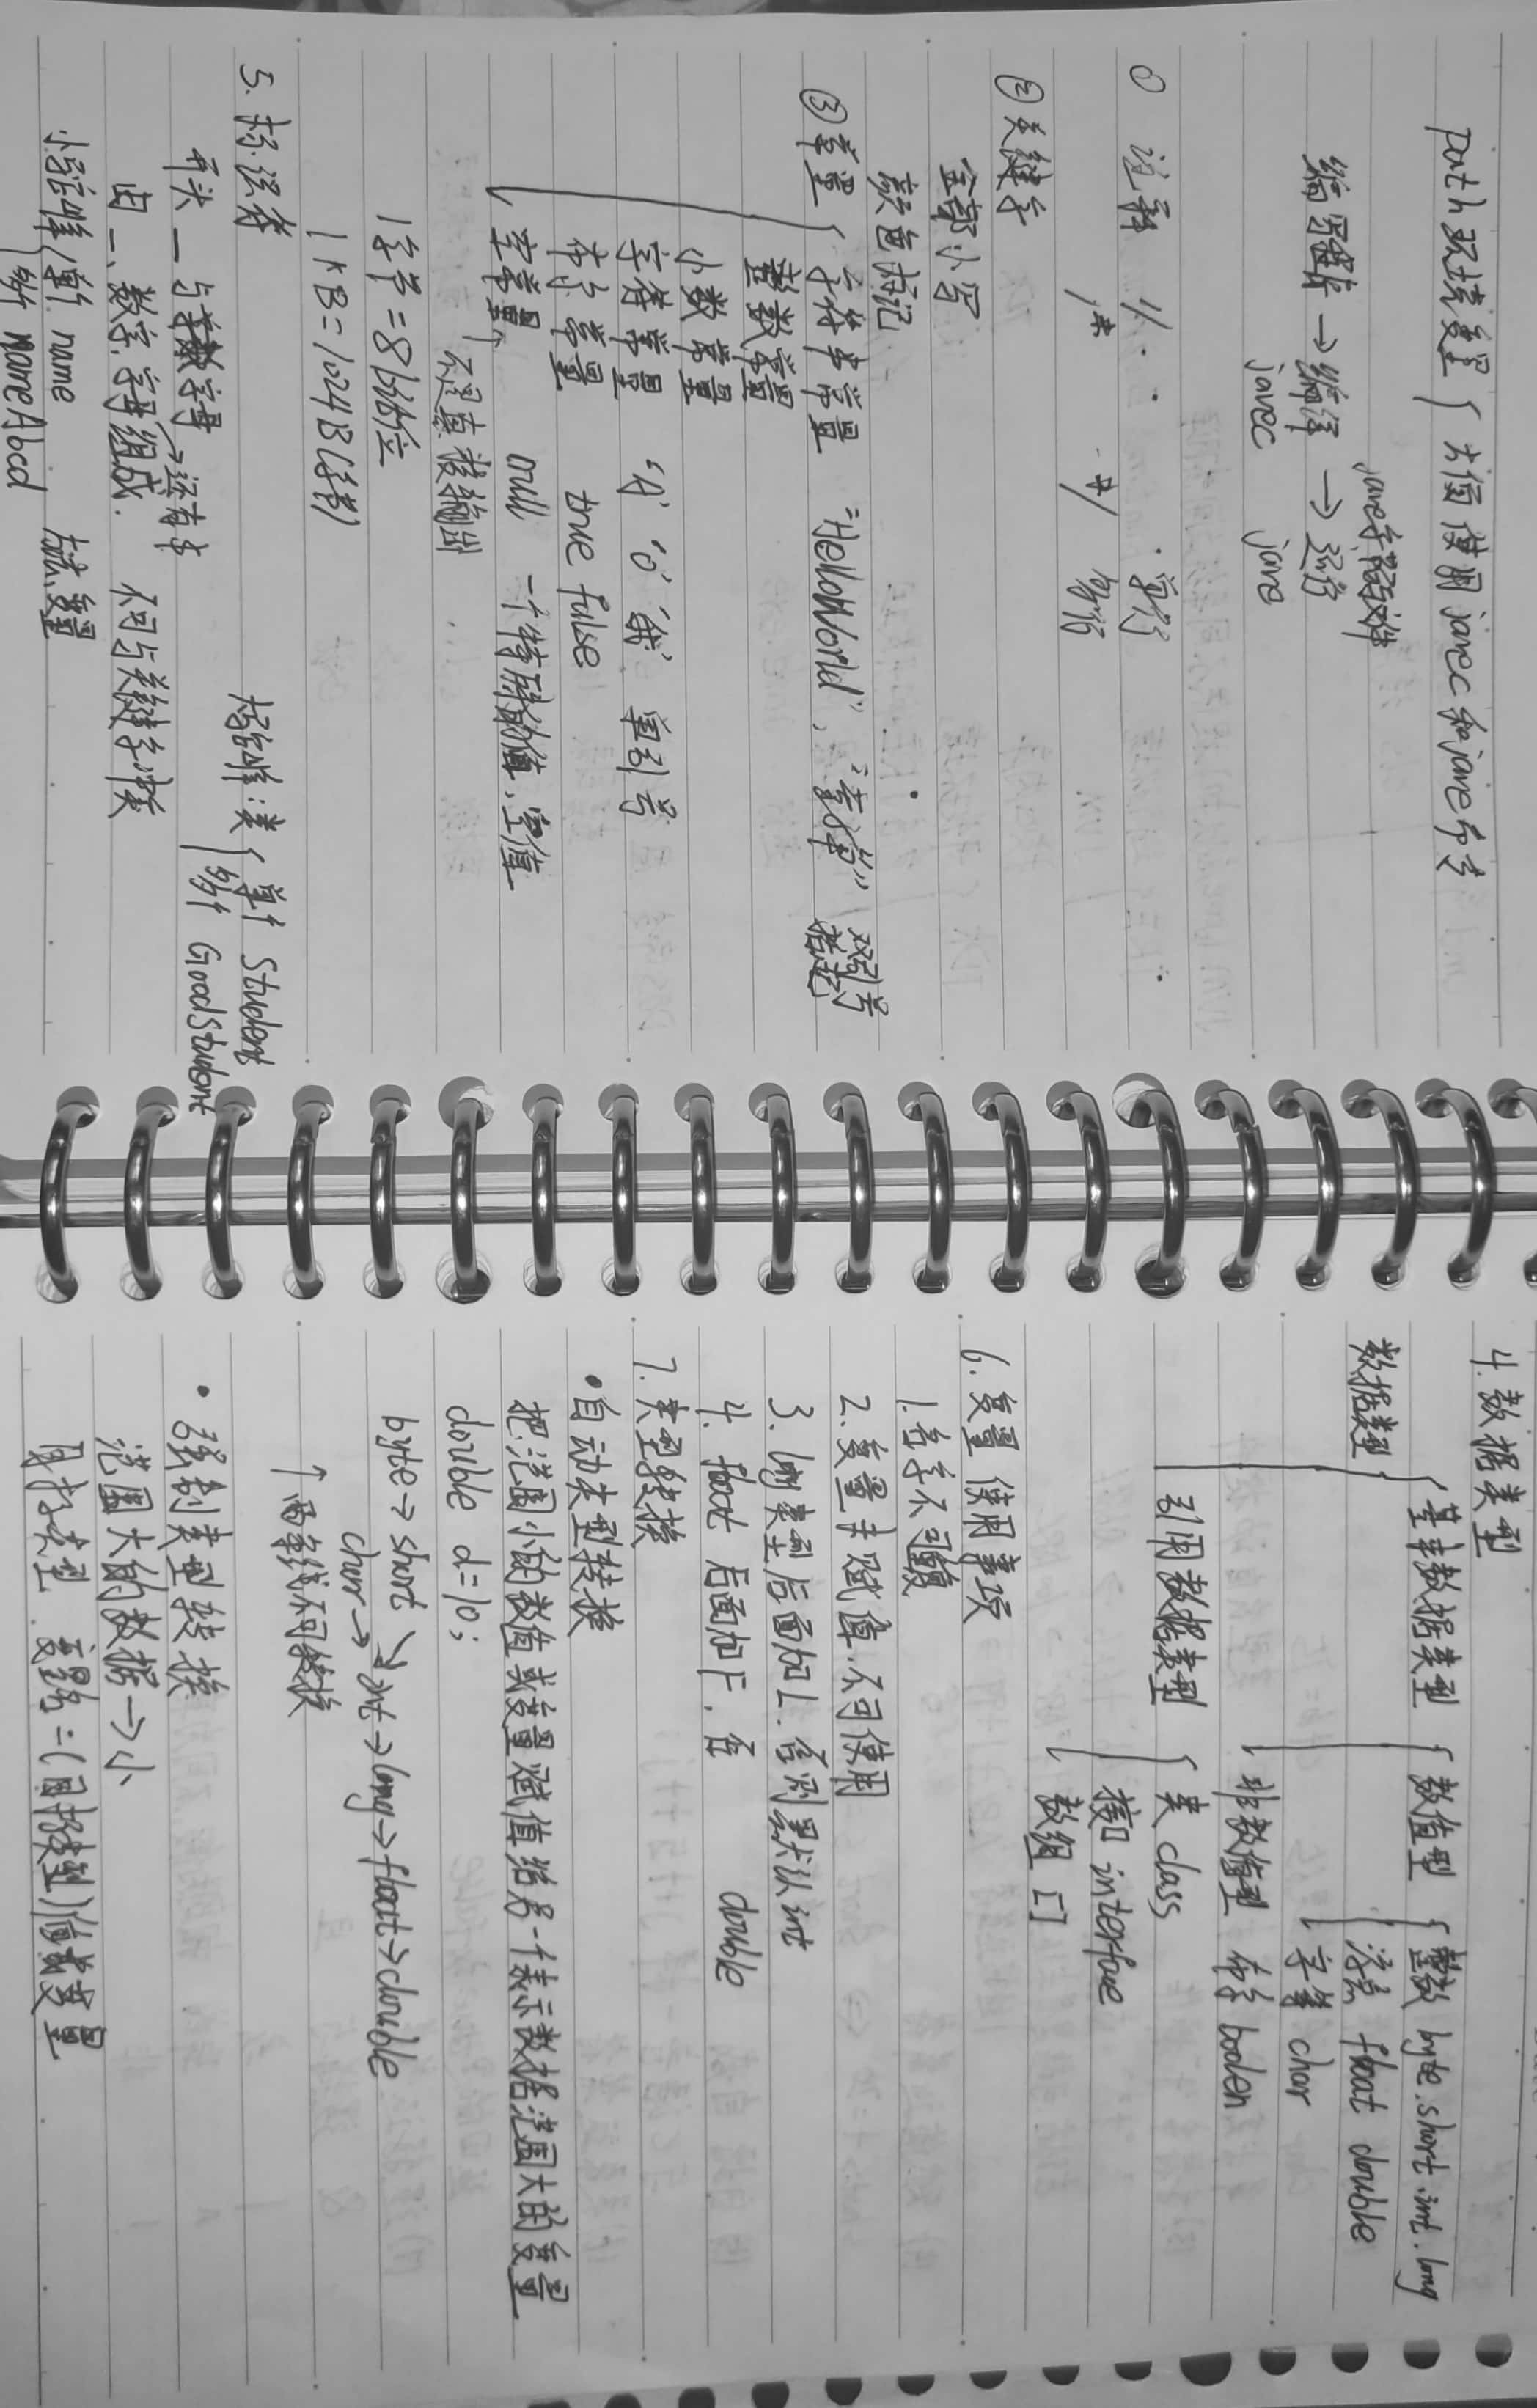 path环境变量{ 方便使用javac和java命令
java字节码文件
编写程序 → 编译 → 运行
javac java
① 注释 // · · · 单行
/* ··*/ 多行
② 关键字
全部小写
颜色标记
③ 常量{ 字符串常量 "HelloWorld", "查谆" 双引号括起
整数常量
小数常量
字符常量 'A' '0' '我' 单引号
布尔常量 true false
空常量 null 一个特殊的值,空值
↑不是直接输出
1字节=8bit位
1KB=1024B(字节)
5. 标识符
大写驼峰:类{ 单个 Student
多个 GoodStudent
开头 _ 与字母 →还有$
由 _、数字,字母组成. 不可与关键字冲突
小写驼峰{ 单个 name 方法,变量
多个 nameAbcd
4. 数据类型
数据类型{ 基本数据类型{ 数值型{ 整数 byte.short.int.long
浮点 float double
字符 char
非数值型 布尔 boolen
引用数据类型{ 类 class
接口 interface
数组 []
6. 变量 使用事项
1. 名字不可重复
2. 变量未赋值,不可使用
3. long类型后面加L.否则默认int
4. float 后面加F,否 double
7. 类型转换
•自动类型转换
把范围小的数值或变量赋值给另一个表示数据范围大的变量
double d=10;
byte→short ↘
char→ int→long→float→double
↑两条线不可转换
• 强制类型转换
范围大的数据→小
目标类型 变量名=(目标类型)值或变量